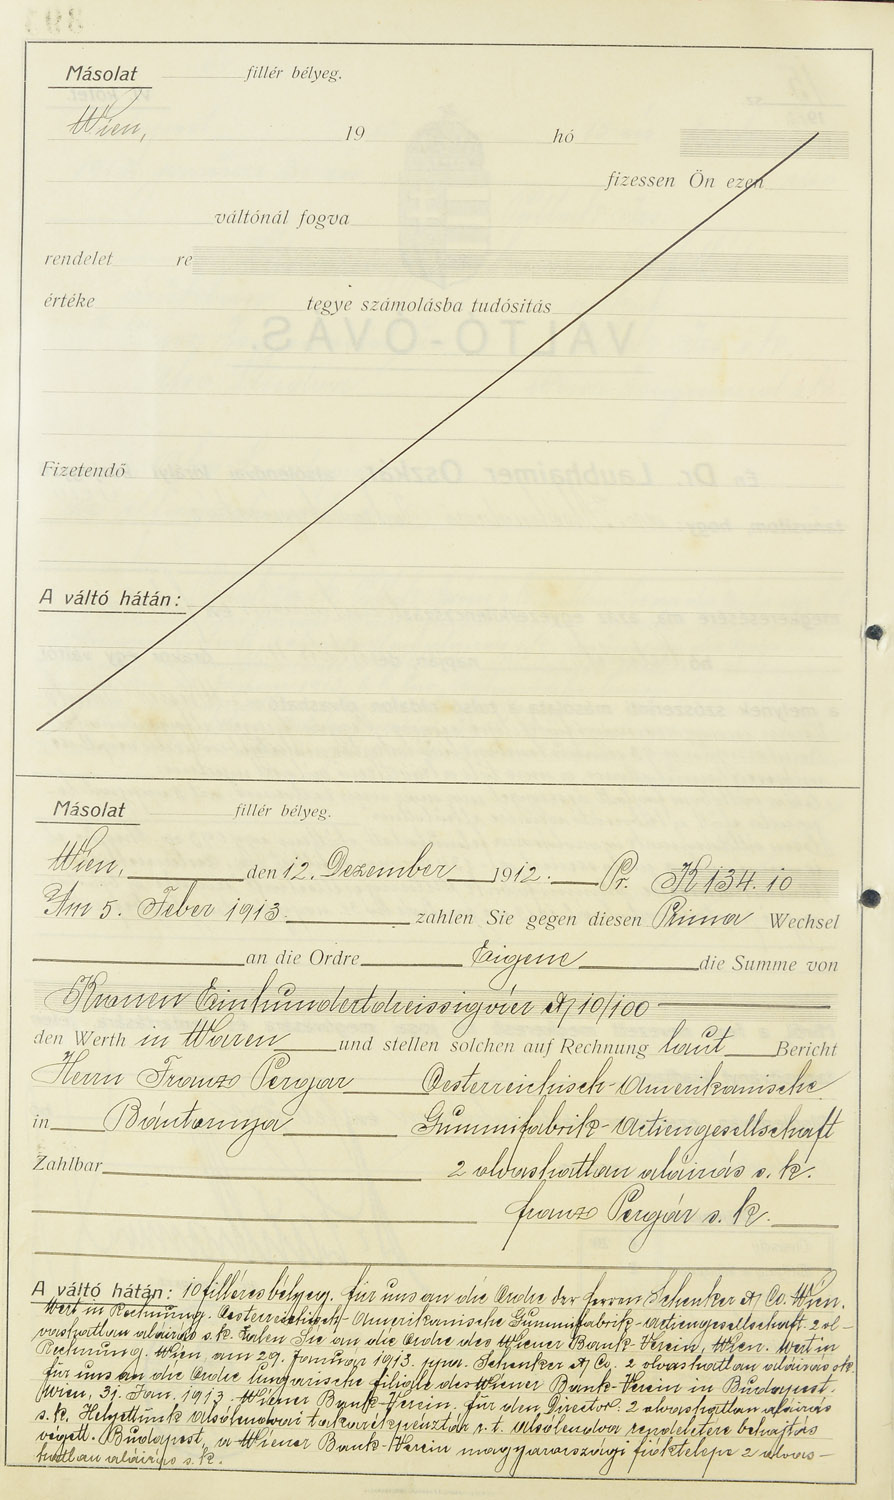 Másolat fillér bélyeg.
Wien, 19 hó
fizessen Ön ezen
váltónál fogva
rendelet re
értéke tegye számolásba tudósitás
Fizetendő
A váltó hátán:
Másolat fillér bélyeg.
Wien, den 12. Dezember 1912. Pr. K 134.10
Am 5. Feber 1913. zahlen Sie gegen diesen Prima Wechsel
an die Ordre Eigene die Summe von
Kronen Einhundertdreissigvier & 10/100
den Werth in Waren und stellen solchen auf Rechnung laut Bericht
Herrn Franzo Pergár Oesterreichisch-Amerikanische
in Bántornya Gummifabrik-Actiengesellschaft
Zahlbar 2 olvashatlan aláirás s. k.
franzo Pergár s. k.
A váltó hátán: 10 filléres bélyeg. für uns an die Ordre der Herren Schenker & Co. Wien.
Wert in Rechnung. Oesterreichisch-Amerikanische Gummifabrik-Actiengesellschaft. 2 ol-
vashatlan aláirás s. k. Zalen Sie an die Ordre des Wiener Bank-Verein, Wien. Wert in
Rechnung. Wien, am 29. Januar 1913. ppa. Schenker & Co. 2 olvashatlan aláirás s.k.
für uns an die Ordre Ungarische filiale des Wiener Bank-Verein in Budapest.
Wien, 31. Jan. 1913. Wiener Bank-Verein. für den Director. 2 olvashatlan aláirás
s. k. Helyettünk Alsólendvai takarékpénztár r. t. Alsólendva rendeletére behajtás
végett. Budapest, a Wiener Bank-Verein magyarországi fióktelepe 2 olvas-
hatlan aláirás s. k.